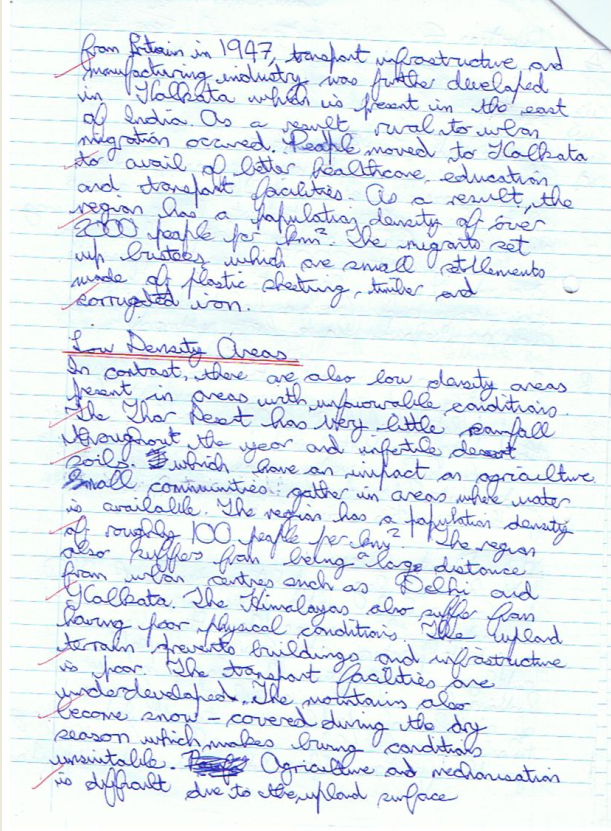 from Britain in 1947, transport infrastructure and
manufacturing industry was further developed
in Kolkata which is present in the east
of India. As a result rural to urban
migration occured. People moved to Kolkata
to avail of better healthcare, education
and transport facilities. As a result, the
region has a population density of over
2000 people per km². The migrants set
up bustees which are small settlements
made of plastic sheeting, timber and
corrugated iron.
Low Density Areas
In contrast, there are also low density areas
present in areas with unfavourable conditions.
The Thar Desert has very little rainfall
throughout the year and infertile desert
soils which have an impact on agriculture.
Small communities gather in areas where water
is available. The region has a population density
of roughly 100 people per km². The region
also suffers from being a large distance
from urban centres such as Delhi and
Kolkata. The Himalayas also suffer from
having poor physical conditions. The upland
terrain prevents buildings and infrastructure
is poor. The transport facilities are
underdeveloped. The mountains also
become snow-covered during the dry
season which makes living conditions
unsuitable. Agriculture and mechanisation
is difficult due to the upland surface